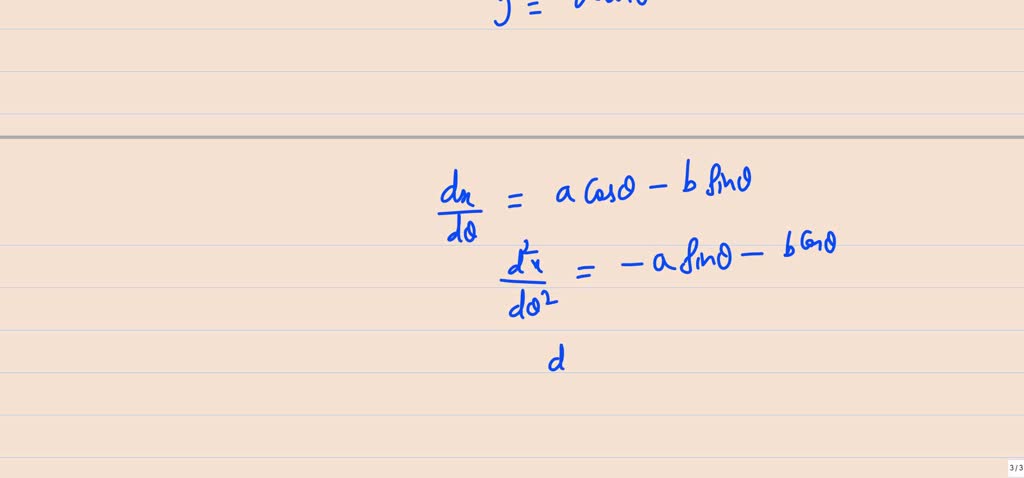 y =
dx/dθ = a Cosθ − b Sinθ
d²x/dθ² = − a Sinθ − b Cosθ
d
3/3